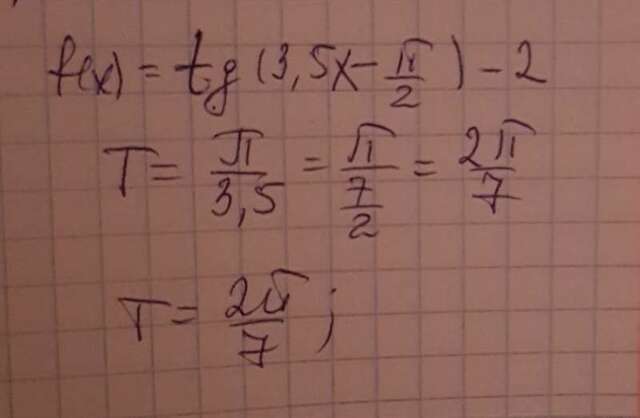 f(x) = tg (3,5x - π/2) - 2
T = π/3,5 = π/(7/2) = 2π/7
T = 2π/7 ;